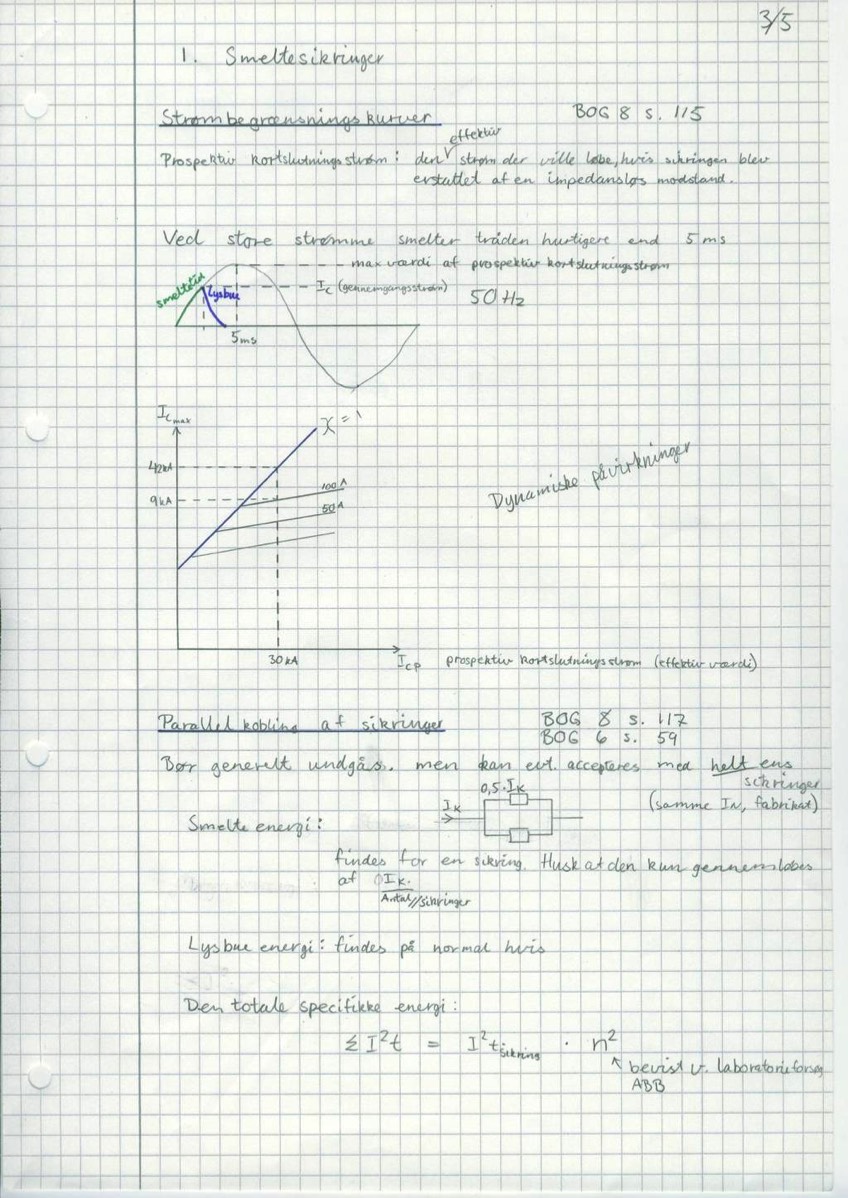 3/5
1. Smeltesikringer
Strømbegrænsningskurver BOG 8 s. 115
effektiv
Prospektiv kortslutningsstrøm: den strøm der ville løbe, hvis sikringen blev
erstattet af en impedansløs modstand.
Ved store strømme smelter tråden hurtigere end 5 ms
max værdi af prospektiv kortslutningsstrøm
smeltetid Lysbue Ic (gennemgangsstrøm) 50 Hz
5ms
Ic max
χ = 1
42kA
9kA
100 A
50 A
Dynamiske påvirkninger
30 kA Icp prospektiv kortslutningsstrøm (effektiv værdi)
Parallel kobling af sikringer BOG 8 s. 117
BOG 6 s. 59
Bør generelt undgås. men kan evt. accepteres med helt ens
sikringer
0,5·Ik
Ik (samme IN, fabrikat)
Smelte energi:
findes for en sikring. Husk at den kun gennemløbes
af Ik.
Antal//sikringer
Lysbue energi: findes på normal hvis
Den totale specifikke energi:
Σ I²t = I²t sikring · n²
bevist v. laboratorieforsøg
ABB